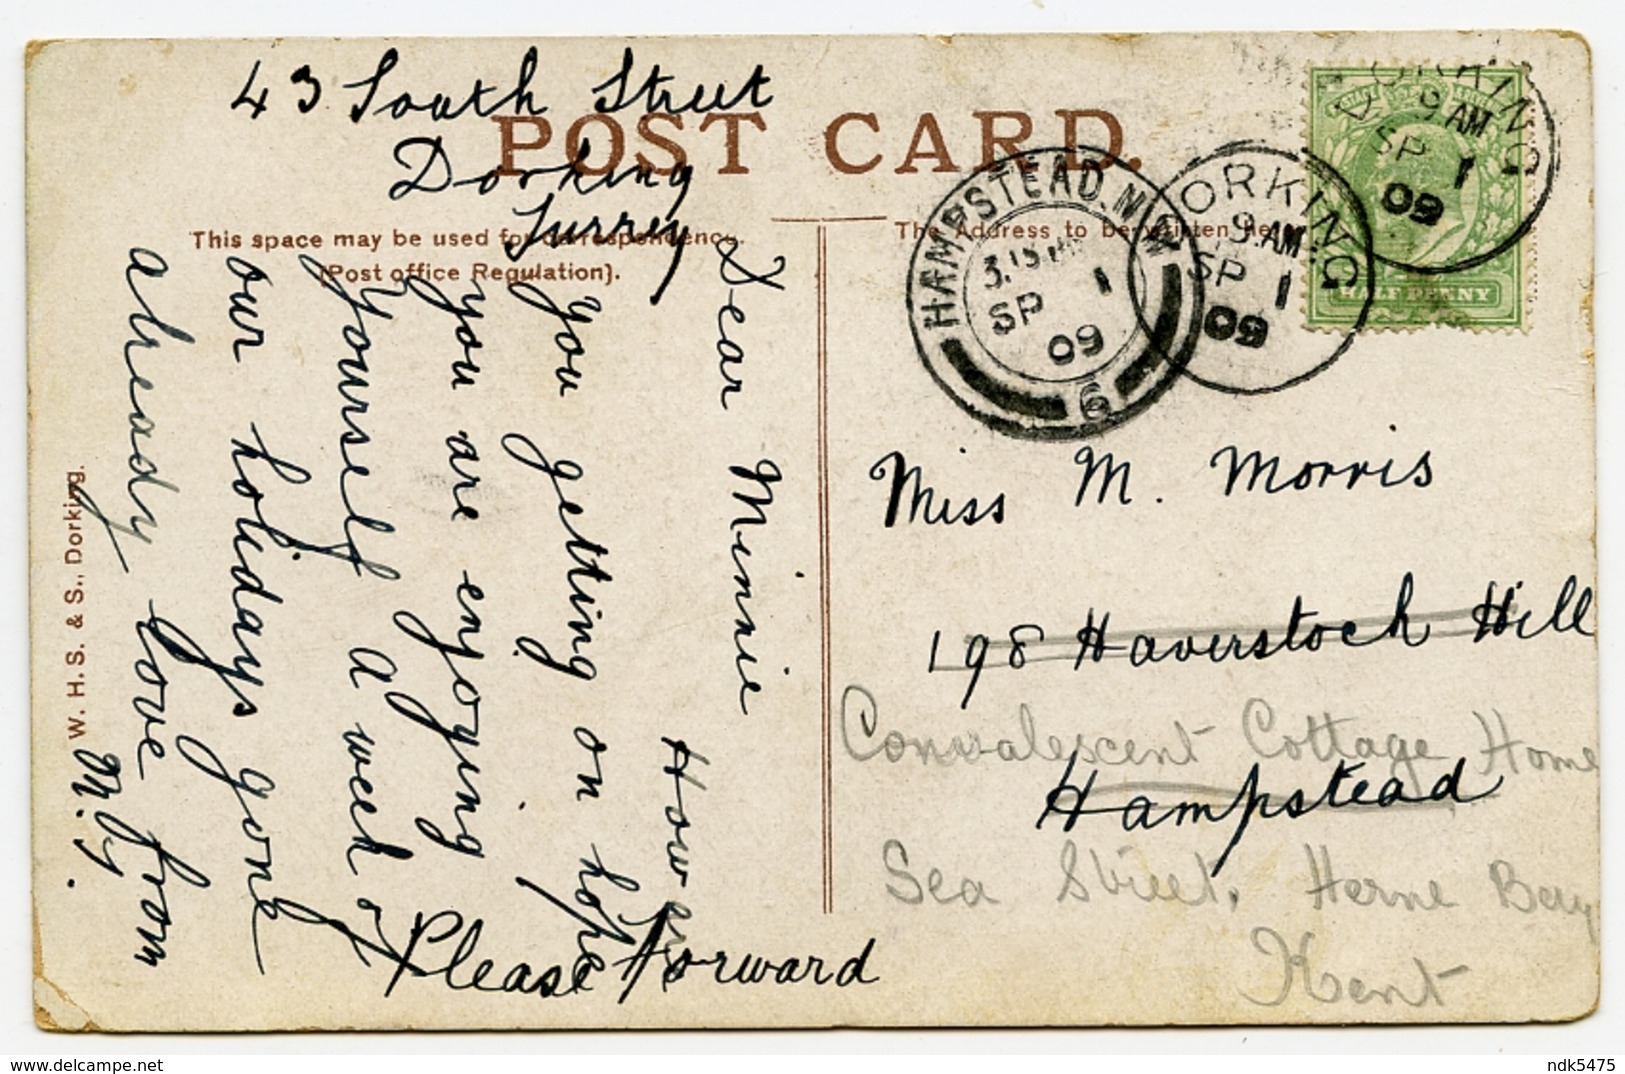 43 South Street
Dorking
Surrey
POST CARD.
This space may be used for correspondence.
(Post office Regulation).
The Address to be written here
Dear Minnie
How are
you getting on hope
you are enjoying
yourself a week of
our holidays gone
already love from
M. J.
Please Forward
W. H. S. & S., Dorking.
HAMPSTEAD. N.W
3.15 PM
SP 1
09
6
DORKING
9 AM
SP 1
09
DORKING
9 AM
SP 1
09
HALF PENNY
Miss M. Morris
198 Haverstock Hill
Convalescent Cottage Home
Hampstead
Sea Street, Herne Bay
Kent
delcampe.net
ndk5475